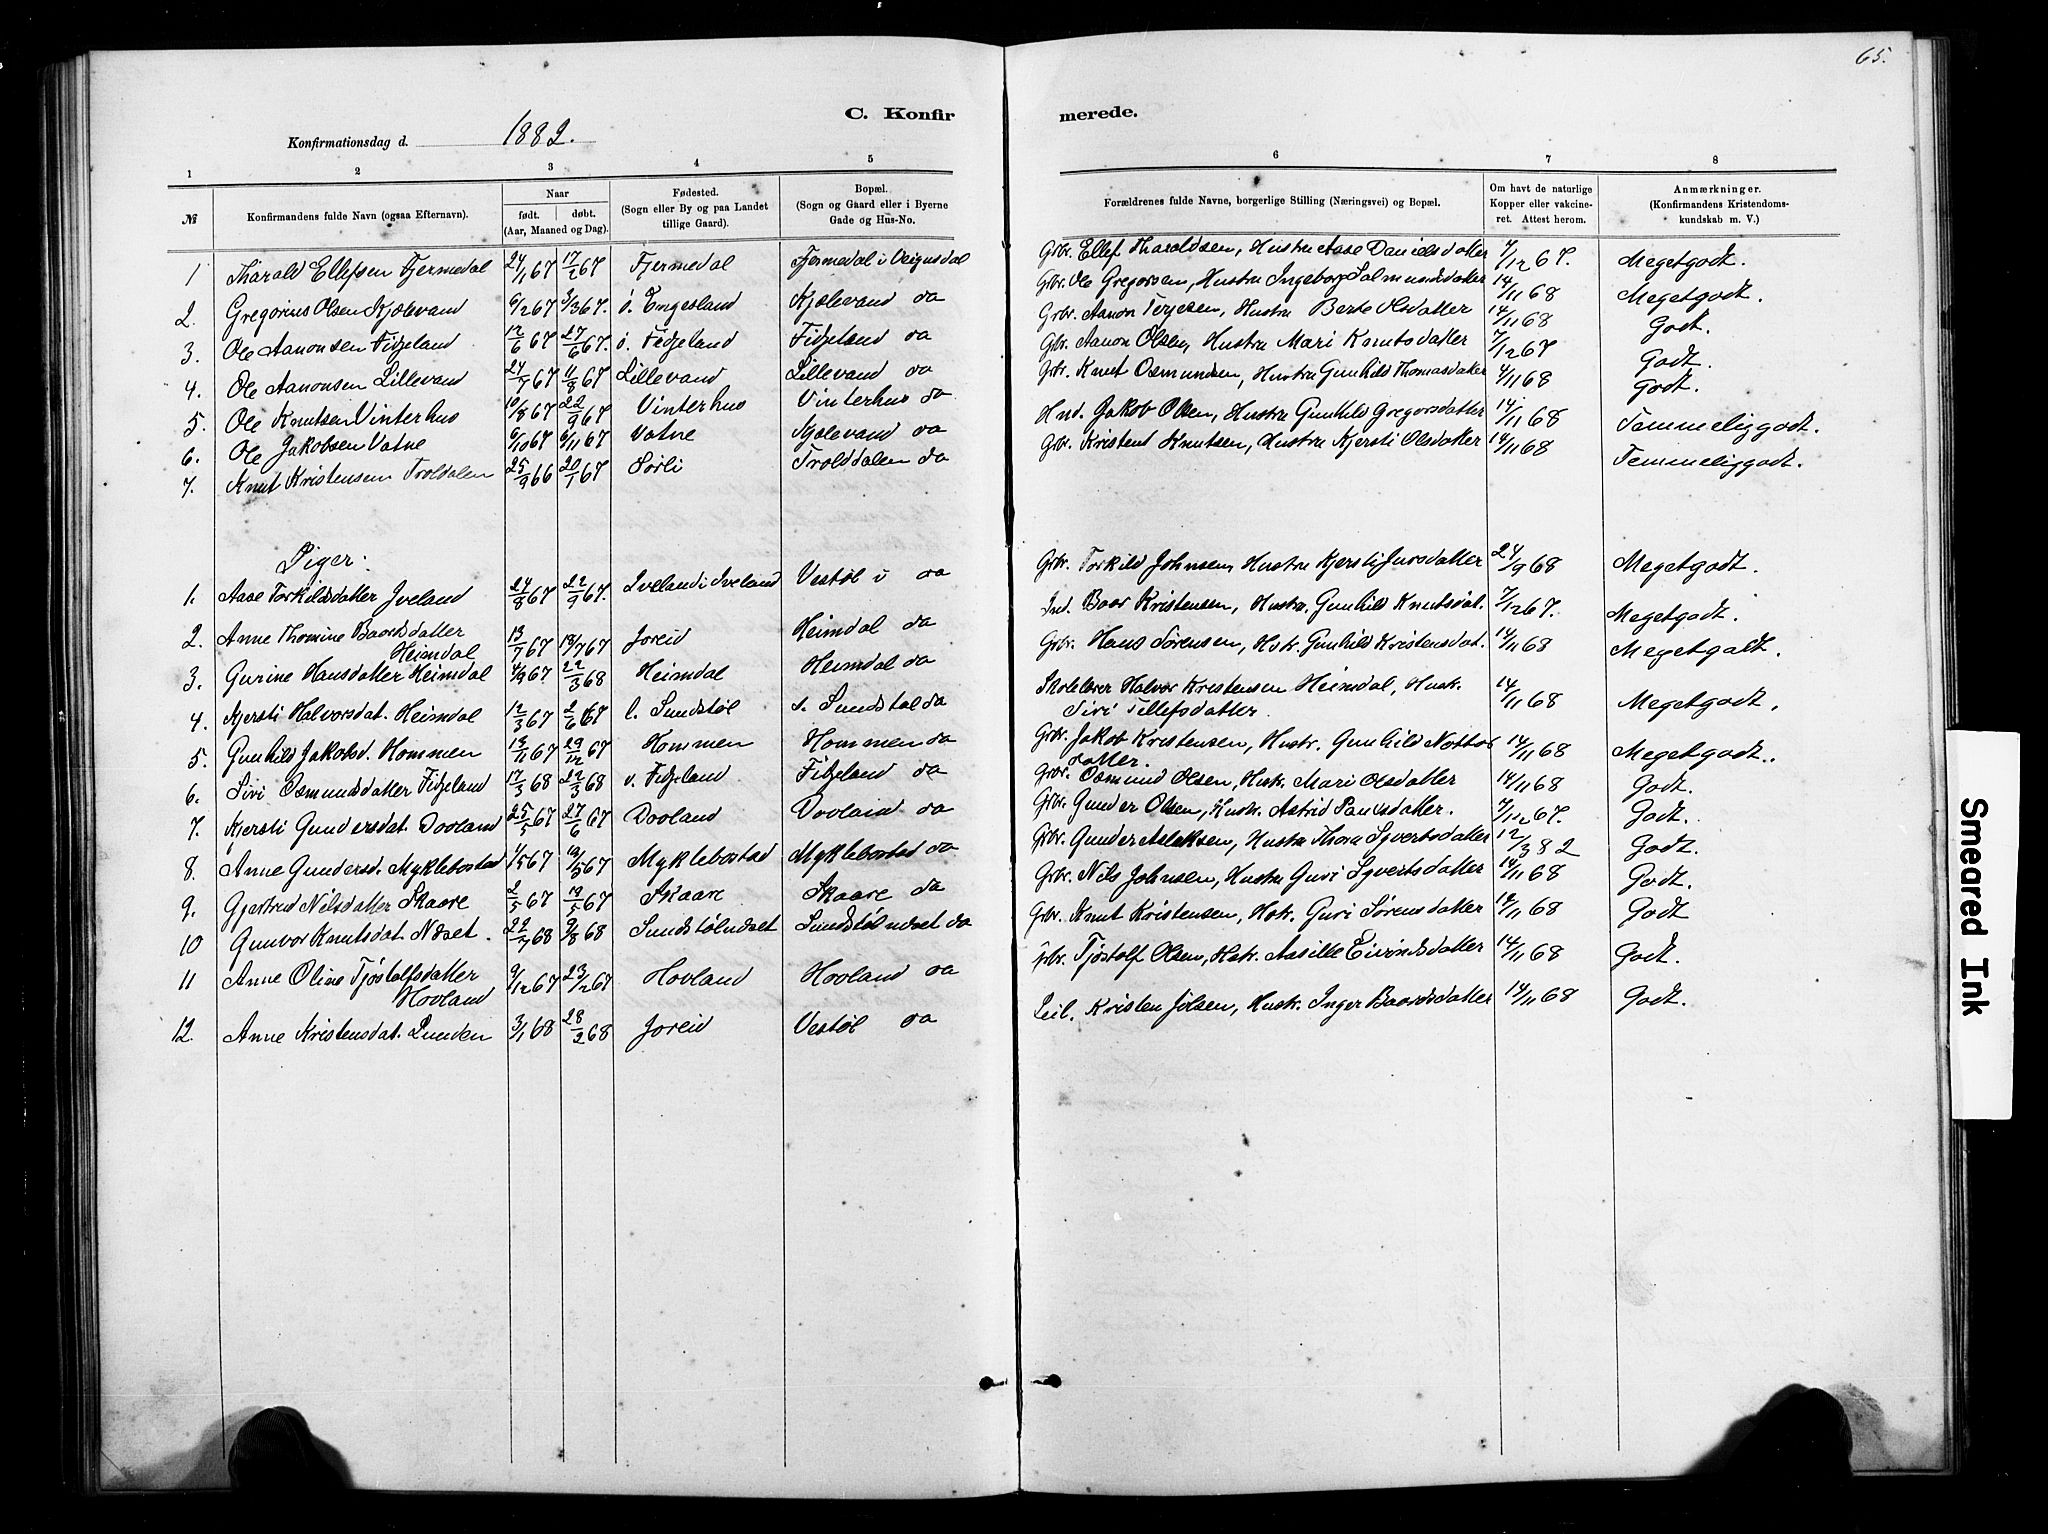 65.
C. Konfirmerede.
Konfirmationsdag d. 1882.
1 2 3 4 5 6 7 8
№ Konfirmandens fulde Navn (ogsaa Efternavn). Naar født. døbt. (Aar, Maaned og Dag). Fødested. (Sogn eller By og paa Landet tillige Gaard). Bopæl. (Sogn og Gaard eller i Byerne Gade og Hus-No. Forældrenes fulde Navne, borgerlige Stilling (Næringsvei) og Bopæl. Om havt de naturlige Kopper eller vakcineret. Attest herom. Anmærkninger. (Konfirmandens Kristendomskundskab m. V.)
1 Tharald Ellefsen Fjermedal 24/1 67 17/2 67 Fjermedal Fjermedal i Veigusdal Grbr. Ellef Tharaldsen, Hustru Aase Danielsdatter 7/12 67. Megetgodt.
2. Gregorius Olsen Kjølevand 6/2 67 3/3 67. ö. Engesland Kjølevand da Grbr. Ole Gregorsen, Hustru Ingeborg Salmundsdatter 14/11 68 Megetgodt.
3. Ole Aanonsen Fidjeland 12/6 67 27/6 67. ö. Fidjeland Fidjeland da Grbr. Aanon Terjesen, Hustru Berte Olsdatter 14/11 68 Godt.
4. Ole Aanonsen Lillevand 24/7 67 11/8 67 Lillevand Lillevand da Grbr. Aanon Olsen, Hustru Mari Knutsdatter 7/12 67 Godt.
5. Ole Knutsen Vinterhus 10/8 67 22/9 67 Vinterhus Vinterhus da Grbr. Knut Osmundsen, Hustru Gunhild Thomasdatter 4/11 68 Godt.
6. Ole Jakobsen Vatne 6/10 67 6/11 67 Vatne Kjølevand da Hmd. Jakob Olsen, Hustru Gunhild Gregorsdatter 14/11 68 Temmeliggodt.
7. Knut Kristensen Troldalen 25/9 66 20/1 67 Sørli Trolddalen da Grbr. Kristen Knutsen, Hustru Kjersti Olsdatter 14/11 68 Temmeliggodt.
Piger:
1. Aase Torkildsdatter Iveland 24/8 67 22/9 67. Iveland i Iveland Vestøl i da Grbr. Torkild Johnsen, Hustru Kjersti Jursdatter 24/9 68 Megetgodt.
2. Anne Thomine Baardsdatter Heimdal 13/7 67 18/7 67 Joreid Heimdal da Ind. Baar Kristensen, Hustr. Gunhild Knutsdat. 7/12 67. Megetgodt.
3. Gurine Hansdatter Heimdal 4/9 67. 22/3 68 Heimdal Heimdal da Grbr. Hans Sørensen, Hsk. Gunhild Kristensdat. 14/11 68 Megetgodt.
4. Kjersti Halvorsdat. Heimdal 12/3 67 2/6 67 l. Sundstøl s. Sundstøl da Skolelærer Halvor Kristensen Heimdal, Husk. Sivi Tellefsdatter. 14/11 68 Megetgodt.
5. Gunhild Jakobsd. Hommen 13/11 67 29/12 67 Hommen Hommen da Grbr. Jakob Kristensen, Hustr. Gunhild Nottos datter. 14/11 68 Megetgodt.
6. Sivi Osmundsdatter Fidjeland 17/3 68 22/3 68 v. Fidjeland Fidjeland da Grbr. Osmund Olsen, Husk. Mari Olsdatter 14/11 68 Godt.
7. Kjersti Gundersdat. Dovland 25/5 67 27/6 67 Dovland Dovland da Grbr. Gunder Olsen, Husk. Astrid Paulsdatter. 7/12 67. Godt.
8. Anne Gundersd. Myklebostad 1/5 67 19/5 67 Myklebostad Myklebostad da Grbr. Gunder Aslaksen, Hustru Thora Syvertsdatter 12/3 82 Godt.
9. Gjertrud Nilsdatter Skaare 2/5 67 19/5 67 Skaare Skaare da Grbr. Nils Johnsen, Hustru Guri Syvertsdatter 14/11 68 Godt.
10 Gunvor Knutsdat. Næset. 22/7 68 9/8 68 Sundstølnæset Sundstølnæset da Grbr. Knut Kristensen, Hsk. Guri Sørensdatter 14/11 68 Godt
11 Anne Oline Tjøstolfsdatter Hovland 9/12 67 23/12 67 Hovland Hovland da Grbr. Tjøstolf Olsen, Hsk. Aasille Eivindsdatter 14/11 68 Godt.
12. Anne Kristensdat. Lunden 3/1 68 23/2 68 Joreid Vestøl da Leil. Kristen Jølsen, Husk. Inger Baardsdatter 14/11 68 Godt.
Smeared Ink